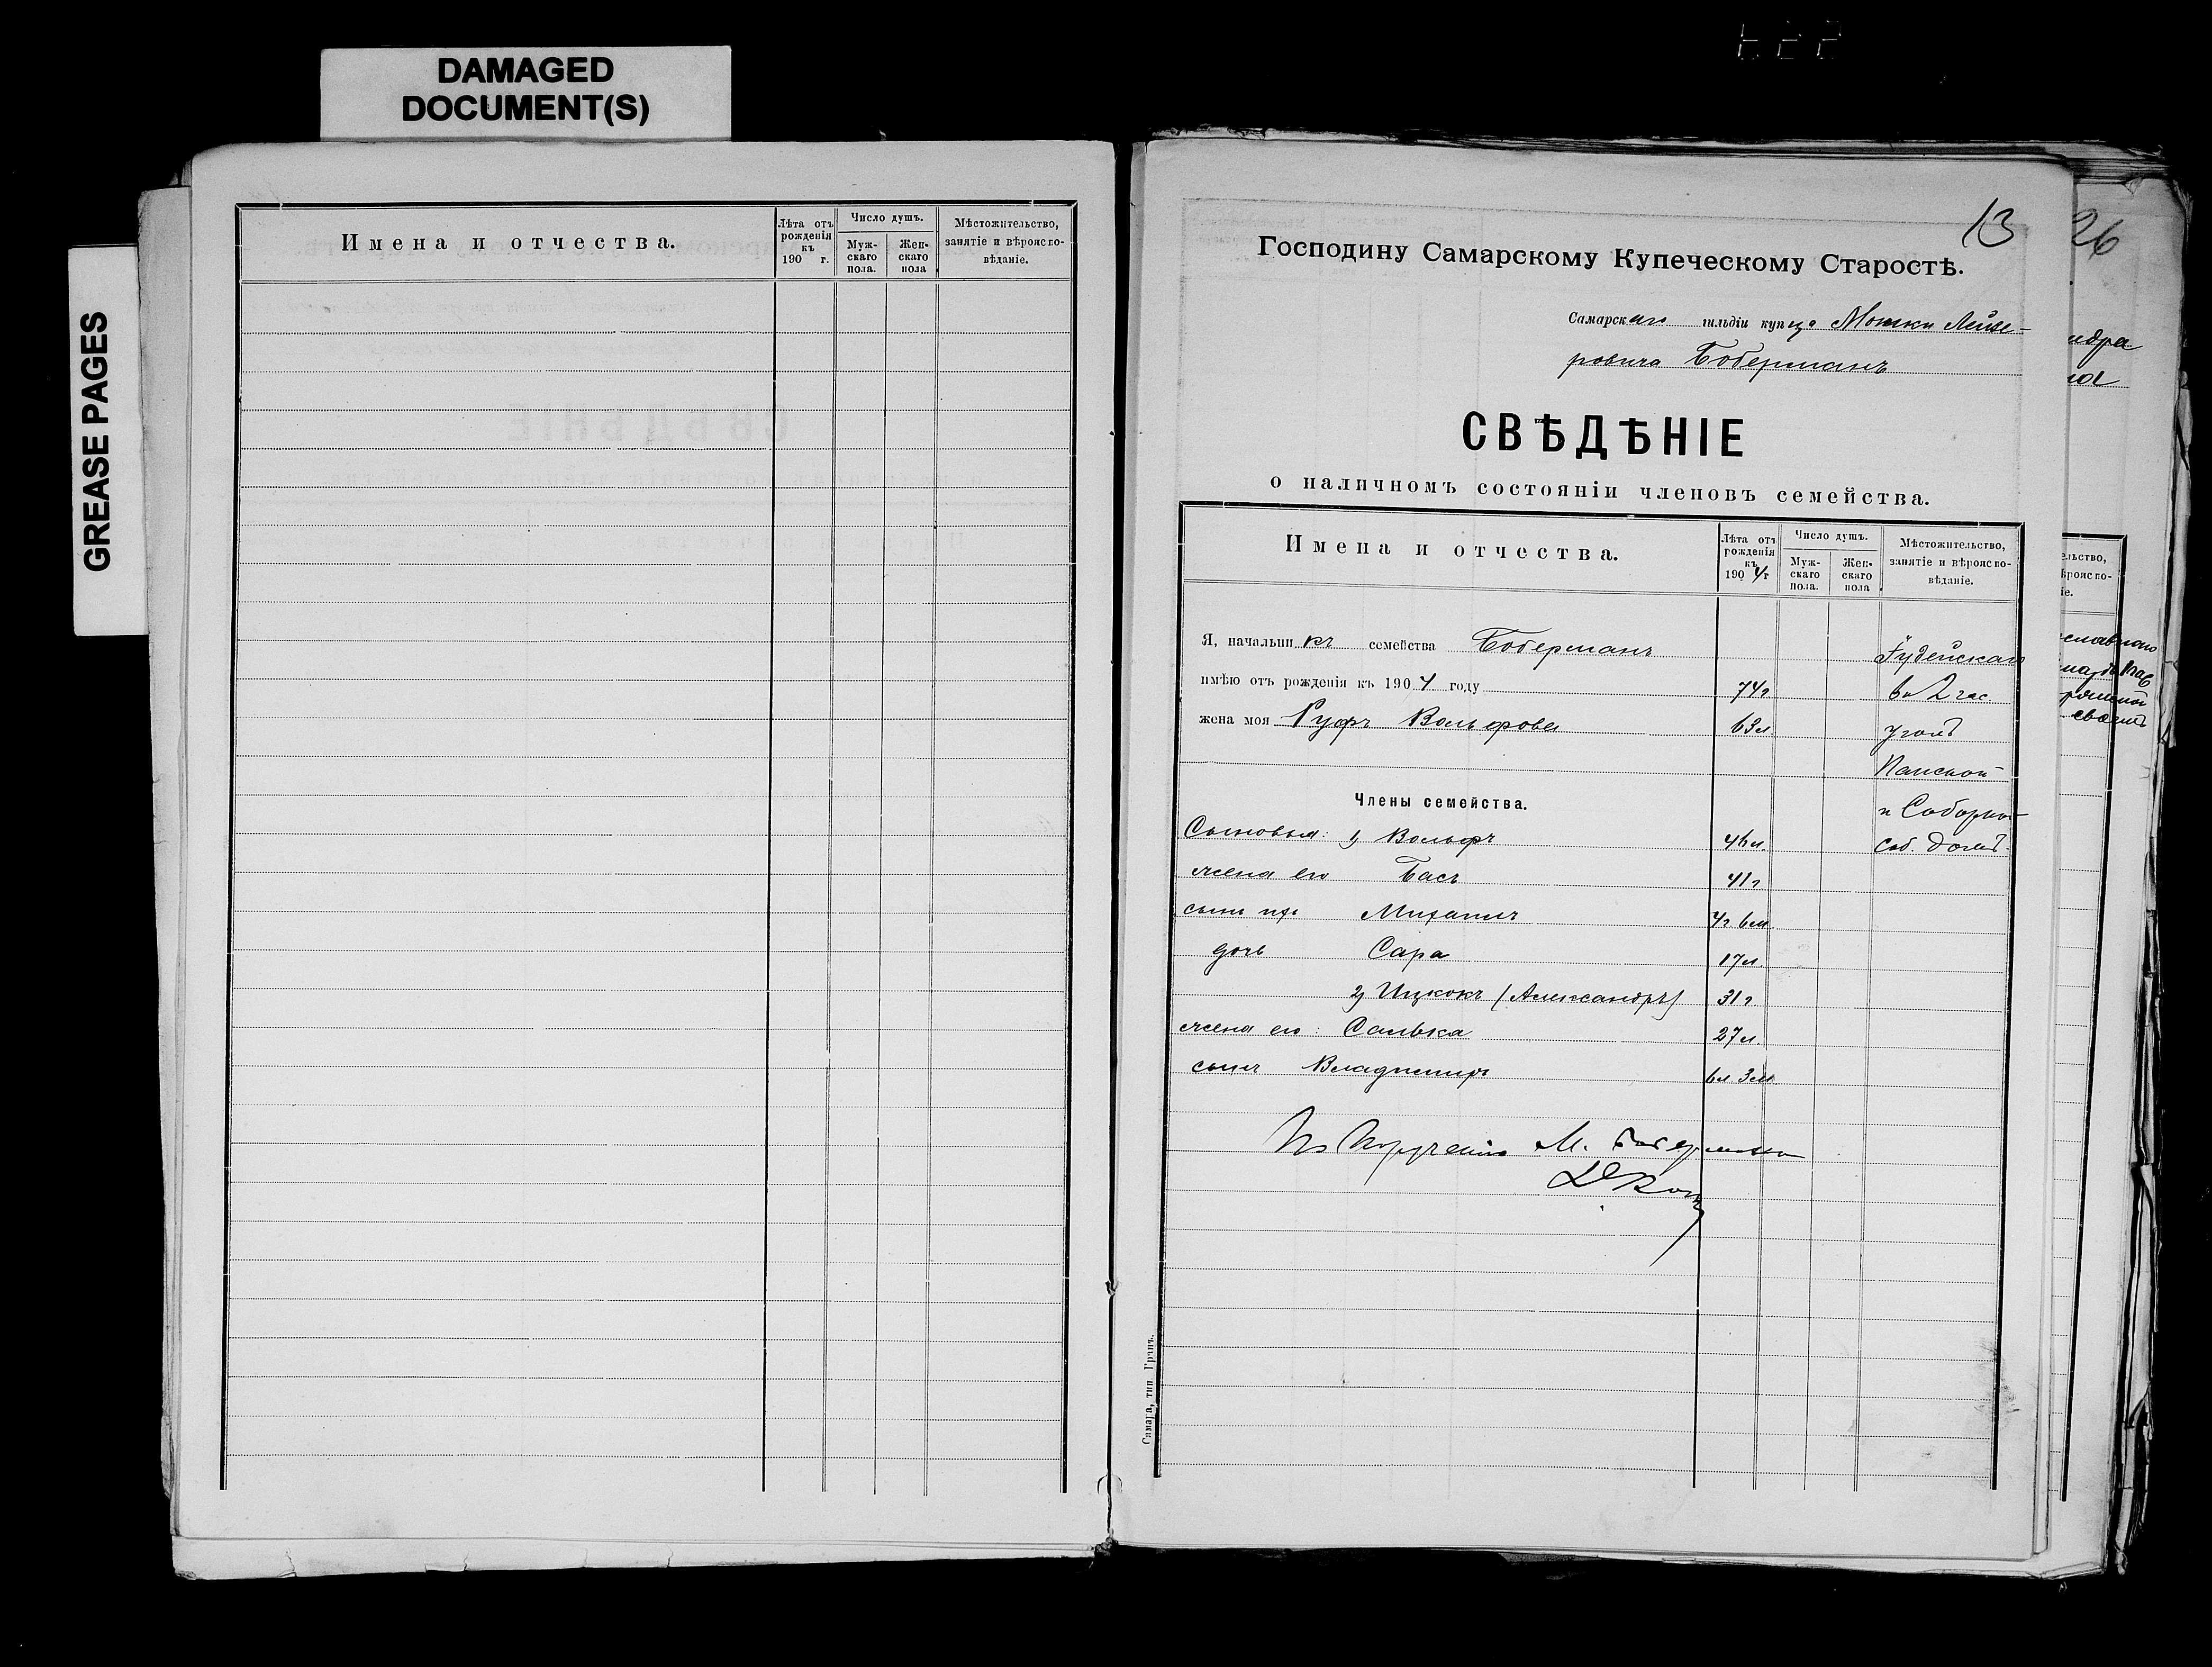 DAMAGED
DOCUMENT(S)
GREASE PAGES
Имена и отчества.
Лѣта отъ рожденія къ 190 г.
Число душъ.
Муж-скаго пола.
Жен-скаго пола
Мѣстожительство, занятіе и вѣроиспо-вѣданіе.
13
26
Господину Самарскому Купеческому Старостѣ.
Самарскаго гильдіи купца Мошки Лейзе-
ровича Боберманъ
СВѢДѢНІЕ
о наличномъ состояніи членовъ семейства.
Имена и отчества.
Лѣта отъ рожденія къ 1904 г
Число душъ.
Муж-скаго пола.
Жен-скаго пола
Мѣстожительство, занятіе и вѣроиспо-вѣданіе.
Я, начальникъ семейства Боберманъ Іудейскаго
имѣю отъ рожденія къ 1904 году 74г во 2 час
жена моя Руфь Вольфова 63л уголъ
Панской
Члены семейства. и Соборной
Сыновья: 1) Вольфъ 46л. соб. домъ.
жена его Бася 41г
сынъ ихъ Михаилъ 4г 6м
дочь Сара 17л.
2) Ицкокъ (Александръ) 31г
жена его: Салька 27л.
сынъ Владимиръ 6л 3м
По порученію М. Бобермана
Самара, тип. Гранъ.